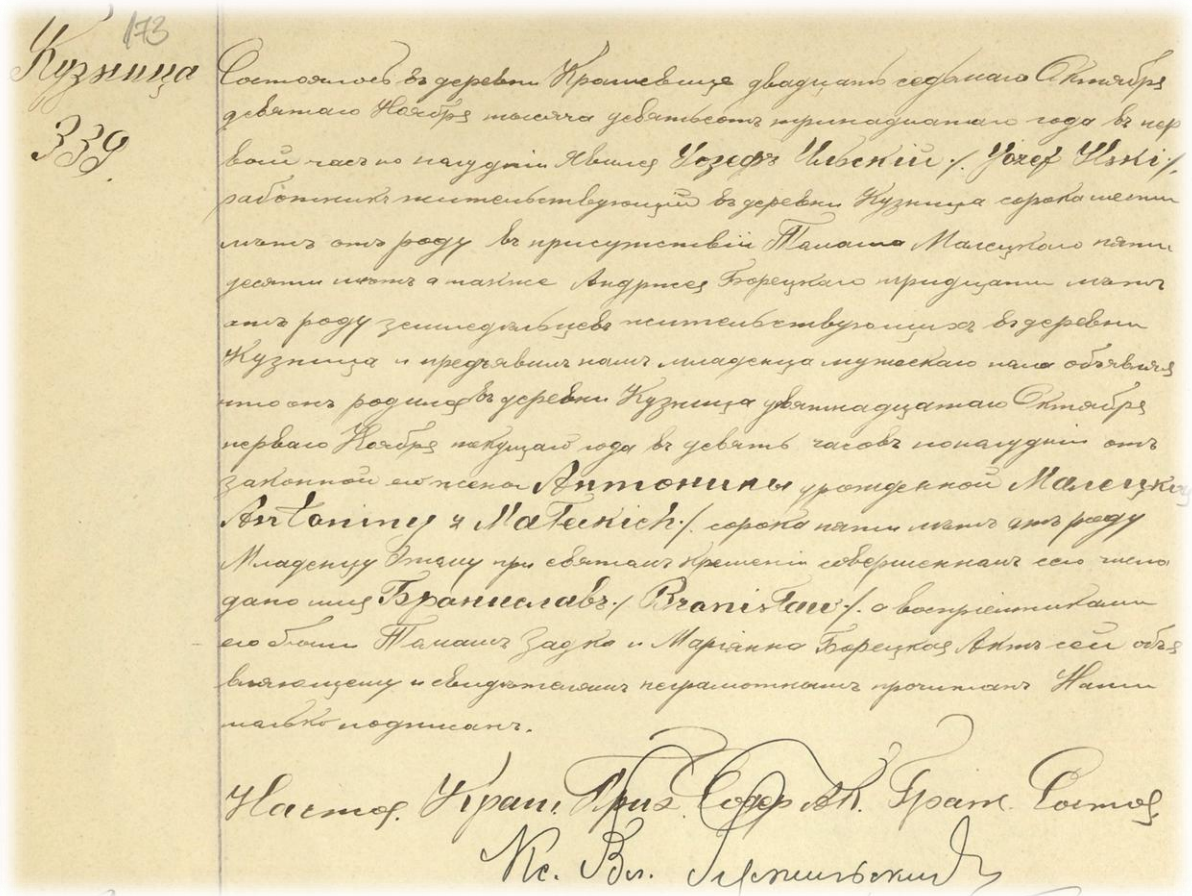 173
Кузница
339.
Состоялось въ деревни Крашевице двадцать седьмаго Октября
девятаго Ноября тысяча девятьсотъ тринадцатаго года въ пер
вой часъ по полудніи Явился Іозефъ Ильскій /. Józef Ilski /.
работникъ жительствующій въ деревни Кузница сорока шести
лѣтъ отъ роду въ присутствіи Томаша Малецкаго пяти
десяти лѣтъ а также Андржея Борецкаго тридцати лѣтъ
отъ роду земледѣльцевъ жительствующихъ въ деревни
Кузница и предъявилъ намъ младенца мужескаго пола объявляя
что онъ родился въ деревни Кузница девятнадцатаго Октября
перваго Ноября текущаго года въ девять часовъ пополудніи отъ
законной его жены Антонины урожденной Малецкихъ
Antoniny z Małeckich /. сорока пяти лѣтъ отъ роду
Младенцу Этому при святомъ крещеніи совершенномъ сего числа
дано имя Брониславъ /. Bronisław /. а воспріемниками
его были Томашъ Задко и Маріянна Борецкая Актъ сей объя
вляющему и свидѣтелямъ неграмотнымъ прочитанъ Нами
только подписанъ.
Настоя. Краш. Прих. Содер. Ак. Граж. Состоя.
Кс. Вл.